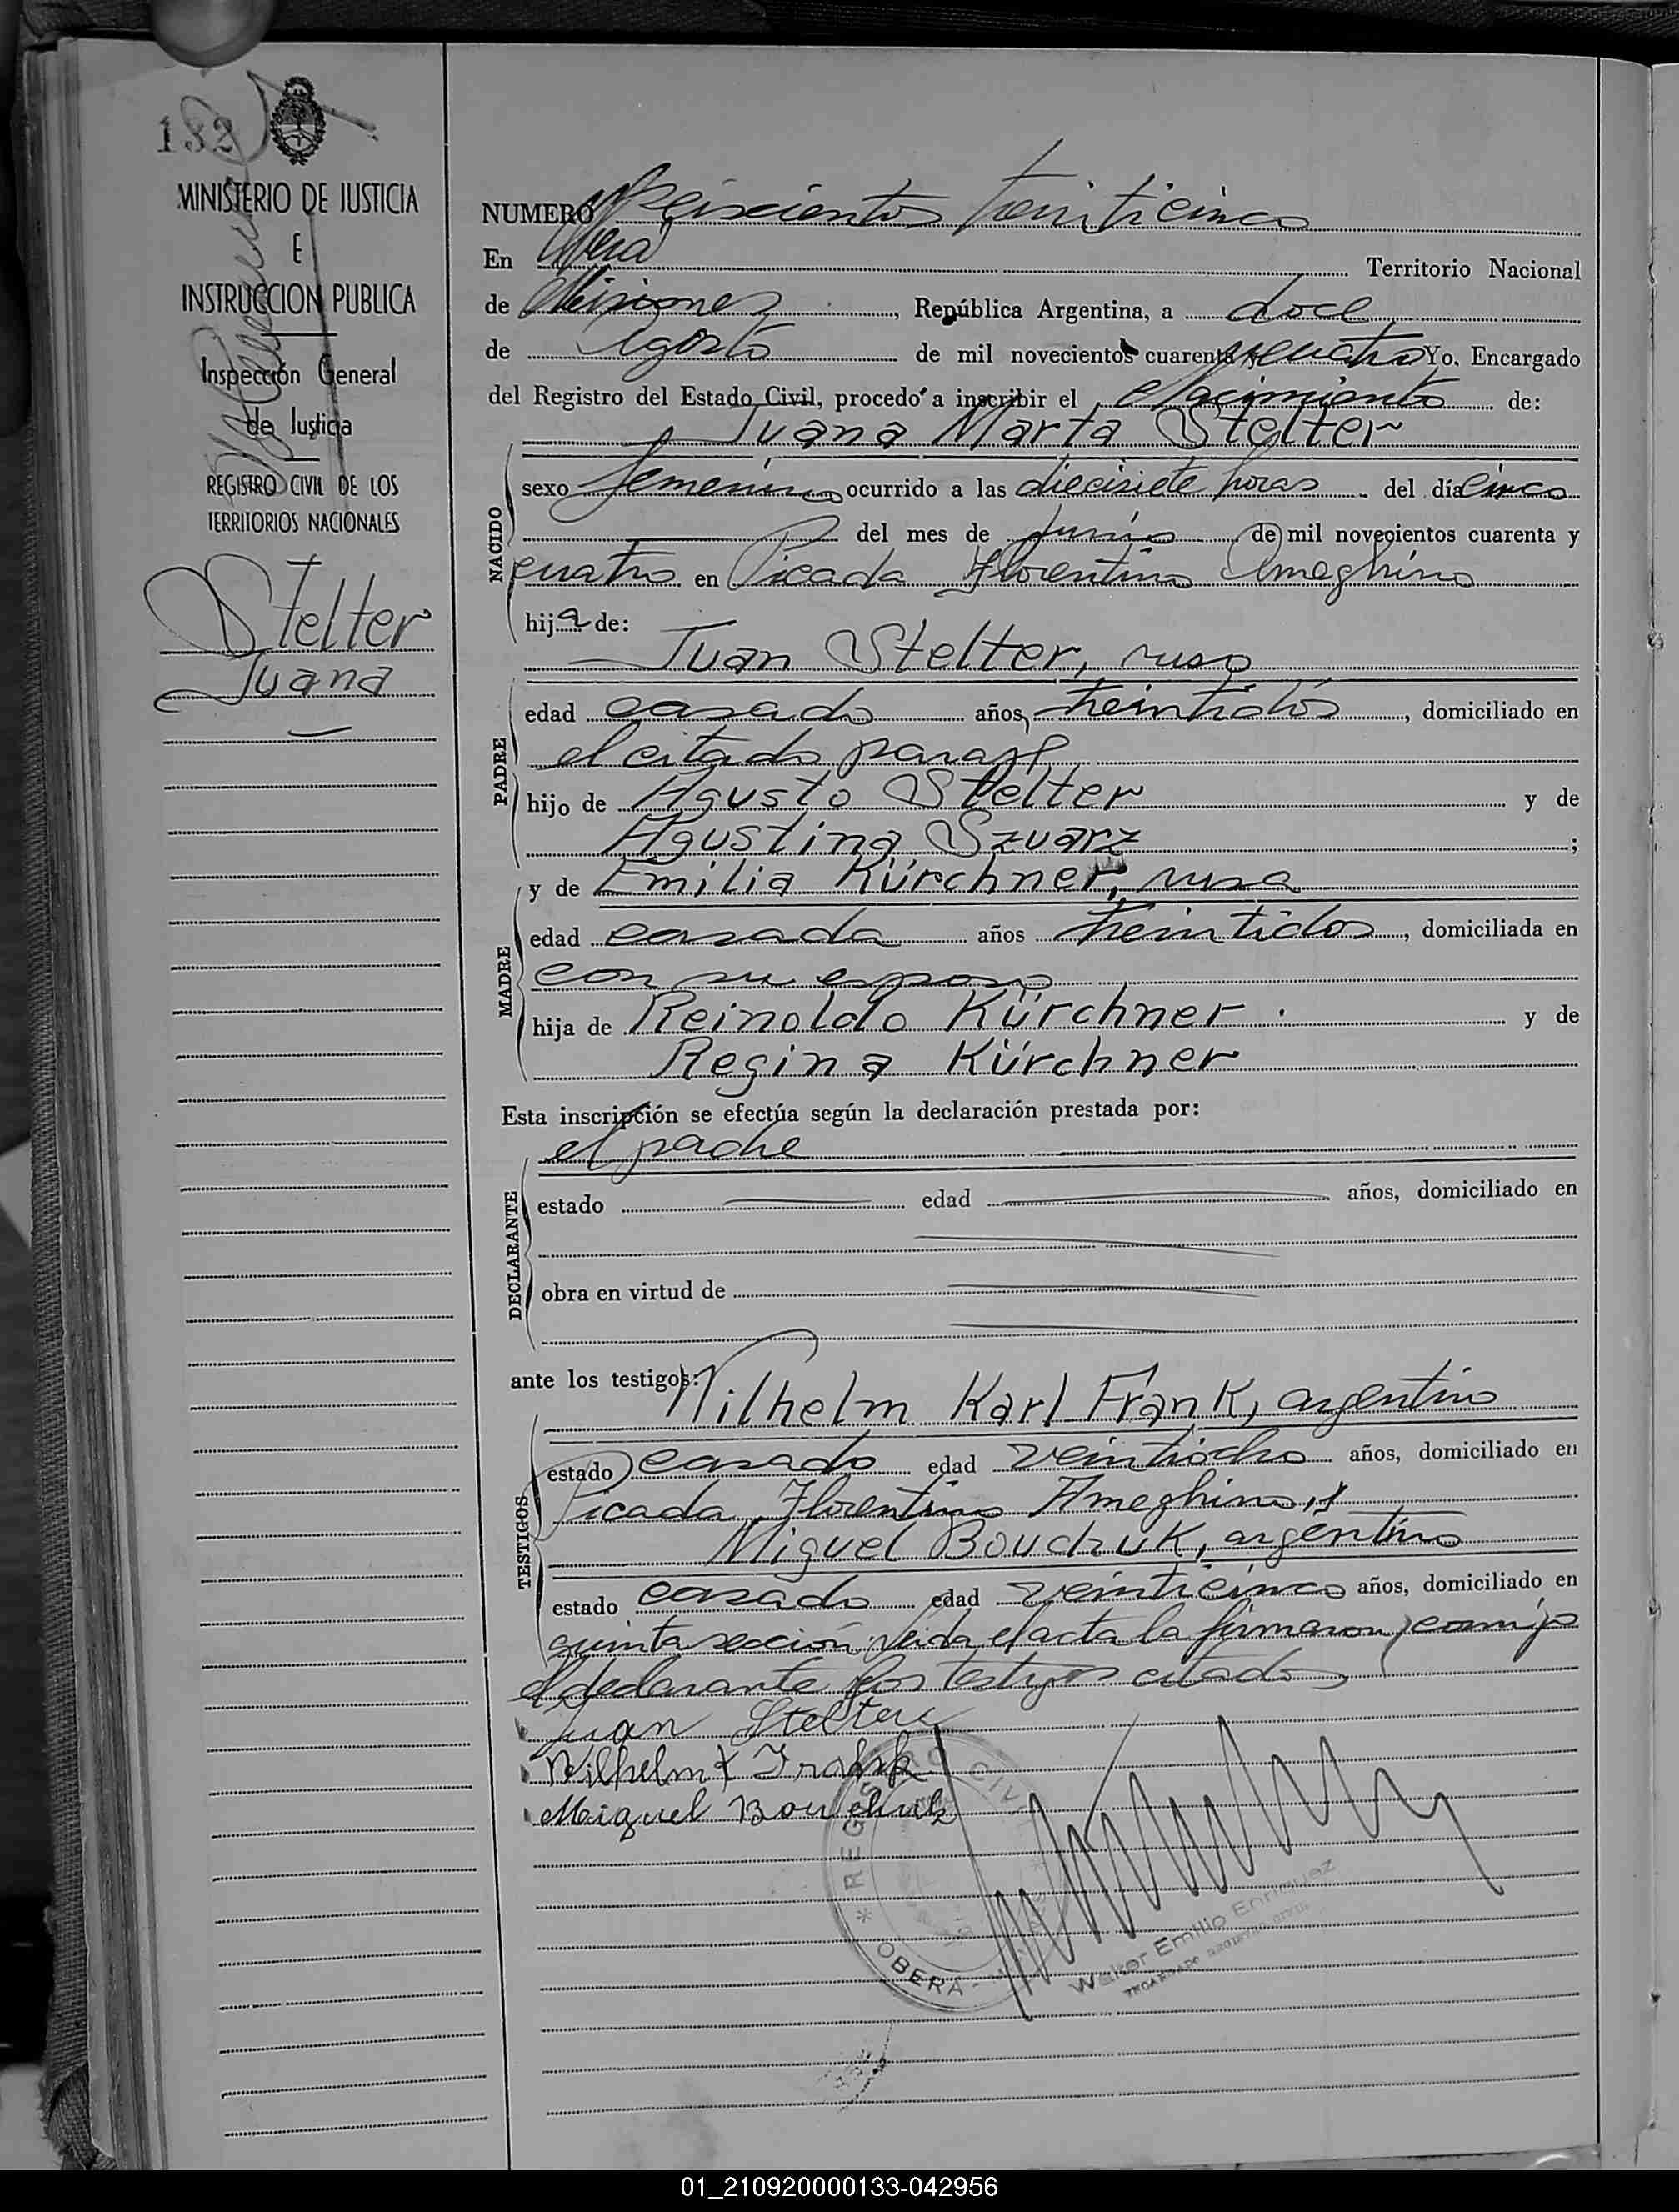 182
MINISTERIO DE JUSTICIA
E
INSTRUCCION PUBLICA
Inspección General
de Justicia
REGISTRO CIVIL DE LOS
TERRITORIOS NACIONALES
Stelter
Juana
NUMERO Seiscientos treinticinco
En Oberá Territorio Nacional
de Misiones, República Argentina, a doce
de Agosto de mil novecientos cuarenta y cuatro Yo, Encargado
del Registro del Estado Civil, procedo a inscribir el Nacimiento de:
Juana Marta Stelter
NACIDO
sexo femenino ocurrido a las diecisiete horas del día cinco
del mes de junio de mil novecientos cuarenta y
cuatro en Picada Florentino Ameghino
hija de:
Juan Stelter, ruso
PADRE
edad casado años, treintidós, domiciliado en
el citado paraje
hijo de Agusto Stelter y de
Agustina Szuarz;
MADRE
y de Emilia Kürchner, rusa
edad casada años treintidos, domiciliada en
con su esposo
hija de Reinoldo Kürchner y de
Regina Kürchner
Esta inscripción se efectúa según la declaración prestada por:
el padre
DECLARANTE
estado edad años, domiciliado en
obra en virtud de
ante los testigos:
Wilhelm Karl Frank, argentino
TESTIGOS
estado casado edad veintiocho años, domiciliado en
Picada Florentino Ameghino, y
Miguel Bouchuk, argentino
estado casado edad veinticinco años, domiciliado en
quinta sección. Leida el acta la firmaron conmigo
el declarante y los testigos citados
Juan Stelter
Wilhelm K Frank
Miguel Bouchuk
REGISTRO CIVIL
* OBERA -
Walter Emilio Enriquez
ENCARGADO REGISTRO CIVIL
01_210920000133-042956